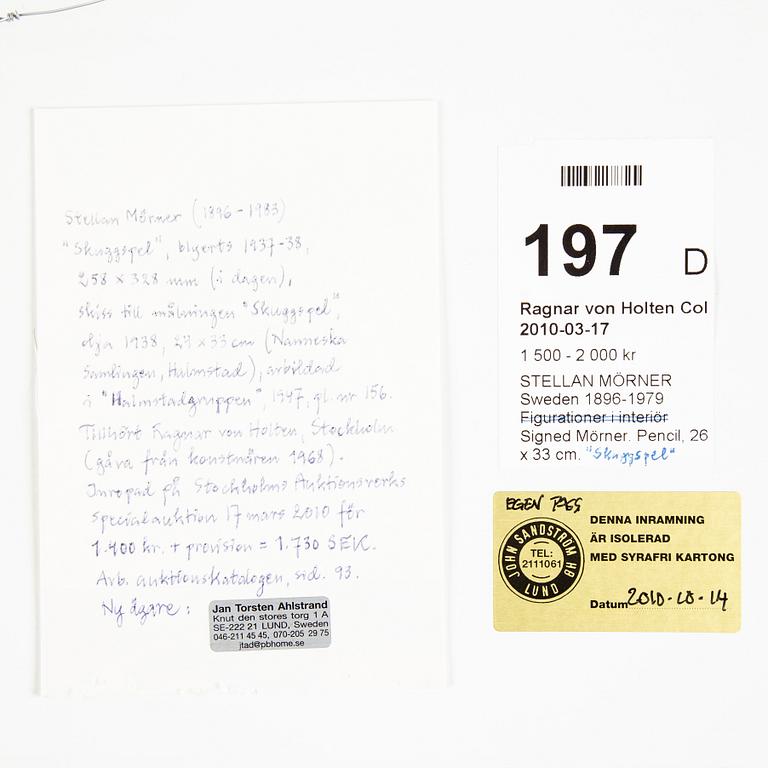 Stellan Mörner (1896-1983)
"Skuggspel", blyerts 1937-38,
258 x 328 mm (i dagen),
skiss till målningen "Skuggspel",
olja 1938, 27 x 33 cm (Nanneska
Samlingen, Halmstad), avbildad
i "Halmstadgruppen", 1947, pl. nr 156.
Tillhört Ragnar von Holten, Stockholm
(gåva från konstnären 1968).
Inropad på Stockholms Auktionsverks
specialauktion 17 mars 2010 för
1.400 kr. + provision = 1.730 SEK.
Avb. auktionskatalogen, sid. 93.
Ny ägare:
Jan Torsten Ahlstrand
Knut den stores torg 1 A
SE-222 21 LUND, Sweden
046-211 45 45, 070-205 29 75
jtad@pbhome.se
197 D
Ragnar von Holten Col
2010-03-17
1 500 - 2 000 kr
STELLAN MÖRNER
Sweden 1896-1979
Figurationer i interiör
Signed Mörner. Pencil, 26
x 33 cm. "Skuggspel"
EGEN PASS
JOHN SANDSTRÖM HB
TEL:
2111061
LUND
DENNA INRAMNING
ÄR ISOLERAD
MED SYRAFRI KARTONG
Datum 2010-10-14